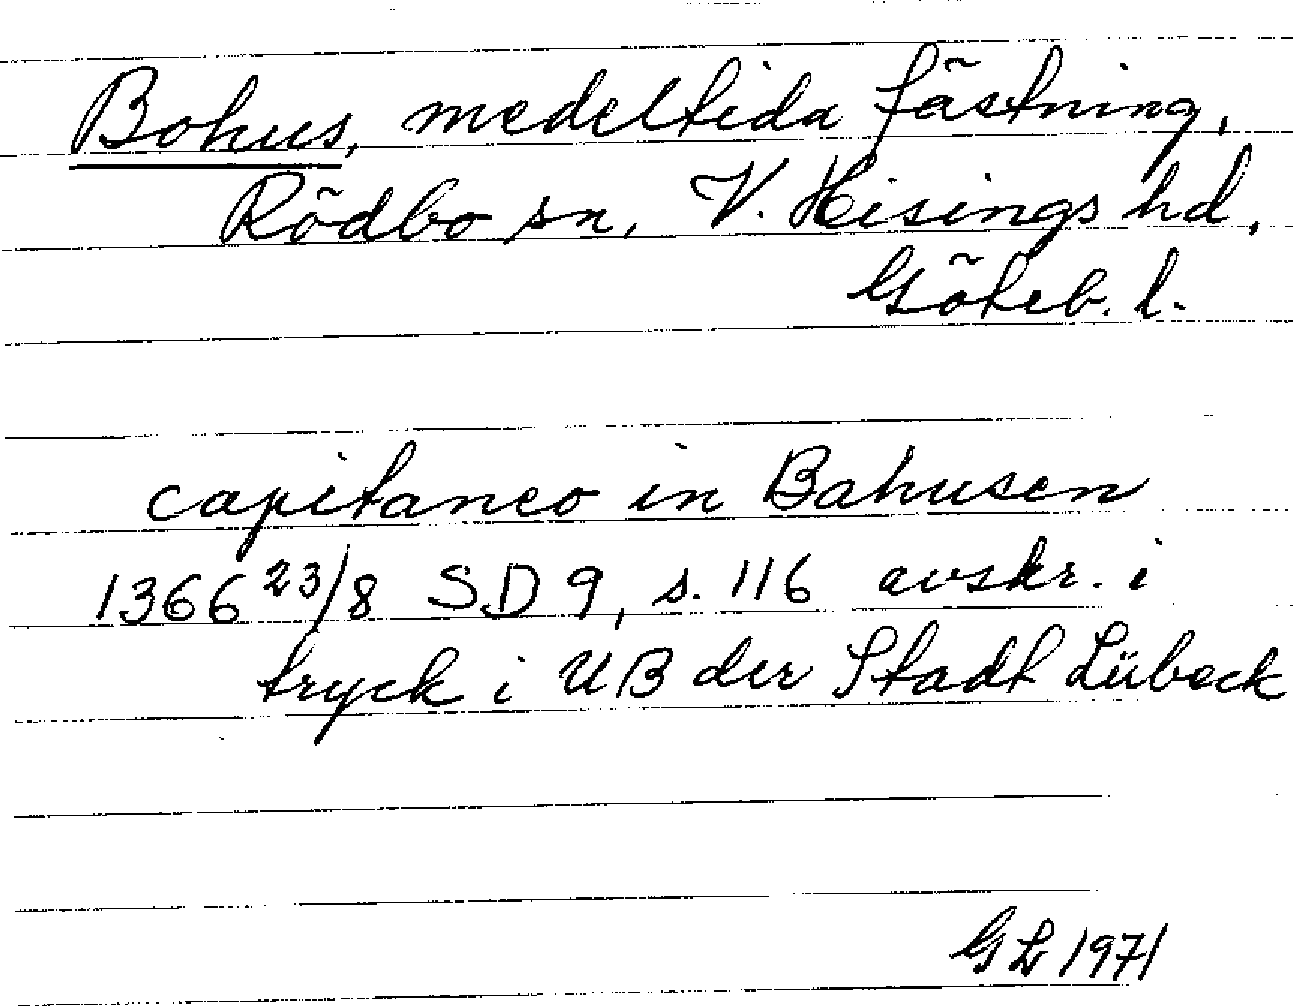 Bohus, medeltida fästning,
Rödbo sn, V. Hisings hd,
Göteb. l.
capitaneo in Bahusen
1366 23/8 SD 9, s. 116 avskr. i
tryck i UB der Stadt Lübeck
GL 1971